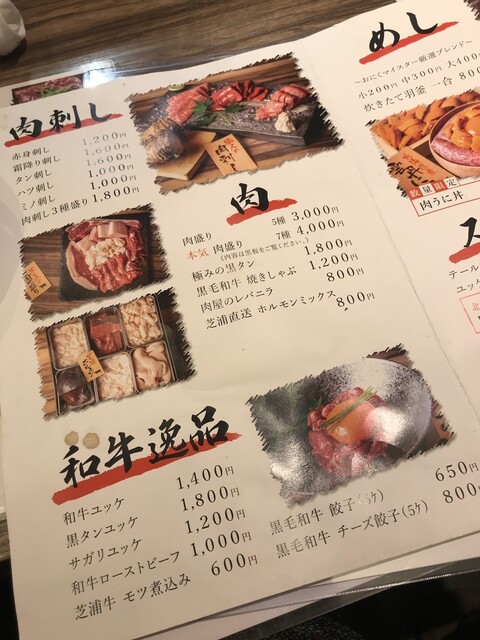 肉刺し
赤身刺し 1,200円
霜降り刺し 1,600円
タン刺し 1,600円
ハツ刺し 1,000円
ミノ刺し 1,000円
肉刺し3種盛り 1,800円
肉刺し
めし
～おにくマイスター厳選ブレンド～
小200円 中300円 大400
炊きたて羽釜 一合 800
数量限定
肉うに丼
肉
肉盛り 5種 3,000円
本気 肉盛り 7種 4,000円
(内容は黒板をご覧ください。)
極みの黒タン 1,800円
黒毛和牛 焼きしゃぶ 1,200円
肉屋のレバニラ 800円
芝浦直送 ホルモンミックス 800円
ス
テール
ユッ
北
和牛逸品
和牛ユッケ 1,400円
黒タンユッケ 1,800円
サガリユッケ 1,200円
和牛ローストビーフ 1,000円
芝浦牛 モツ煮込み 600円
黒毛和牛 餃子(5ケ) 650円
黒毛和牛 チーズ餃子(5ケ) 800円